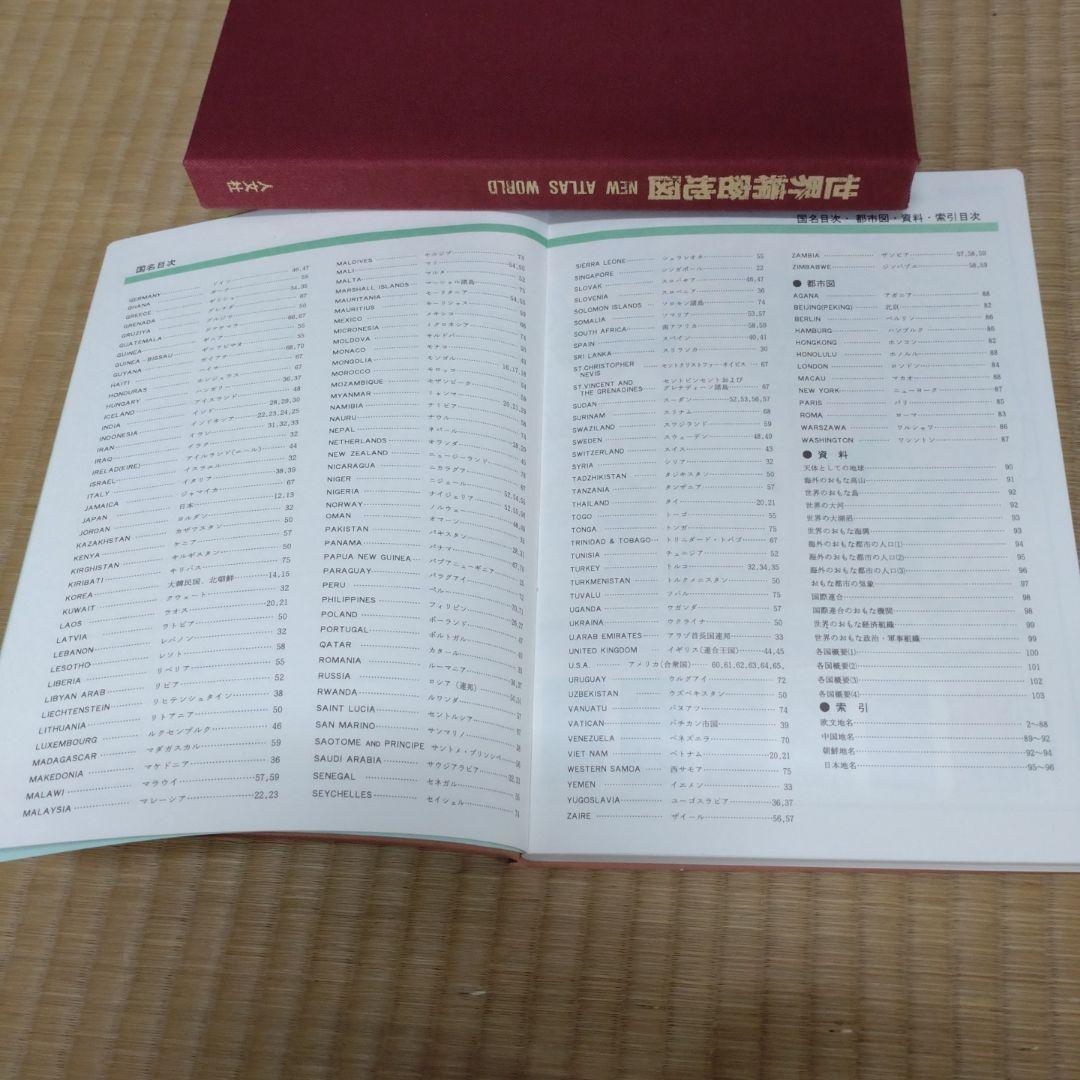 世界精密地図 NEW ATLAS WORLD 人文社
国名目次
GERMANY ドイツ 46,47
GHANA
GREECE ギリシャ
GRENADA グレナダ
GRUZIYA グルジア
GUATEMALA グアテマラ
GUINEA ギニア 55
GUINEA-BISSAU ギアナビサオ
GUYANA ガイアナ
HAITI ハイチ 67
HONDURAS ホンジュラス 67
HUNGARY ハンガリー 36,37
ICELAND アイスランド 48
INDIA インド 28,29,30
INDONESIA インドネシア 22,23,24,25
IRAN イラン 31,32,33
IRAQ イラク 32
IRELAD(EIRE) アイルランド(エール) 44
ISRAEL イスラエル 32
ITALY イタリア 38,39
JAMAICA ジャマイカ 67
JAPAN 日本 12,13
JORDAN ヨルダン 32
KAZAKHSTAN カザフスタン 50
KENYA ケニア 57
KIRGHISTAN キルギスタン 50
KIRIBATI キリバス 75
KOREA 大韓民国、北朝鮮 14,15
KUWAIT クウェート 32
LAOS ラオス 20,21
LATVIA ラトビア 50
LEBANON レバノン 32
LESOTHO レソト 58
LIBERIA リベリア 55
LIBYAN ARAB リビア 52
LIECHTENSTEIN リヒテンシュタイン 38
LITHUANIA リトアニア 50
LUXEMBOURG ルクセンブルク 46
MADAGASCAR マダガスカル 59
MAKEDONIA マケドニア 36
MALAWI マラウイ 57,59
MALAYSIA マレーシア 22,23
MALDIVES モルジブ
MALI マリ
MALTA マルタ
MARSHALL ISLANDS マーシャル諸島
MAURITANIA モーリタニア
MAURITIUS モーリシャス
MEXICO メキシコ
MICRONESIA ミクロネシア
MOLDOVA モルドバ
MONACO モナコ
MONGOLIA モンゴル
MOROCCO モロッコ
MOZAMBIQUE モザンビーク
MYANMAR ミャンマ
NAMIBIA ナミビア
NAURU ナウル
NEPAL ネパール
NETHERLANDS オランダ
NEW ZEALAND ニュージーランド
NICARAGUA ニカラグア
NIGER ニジェール
NIGERIA ナイジェリア
NORWAY ノルウェー
OMAN オマーン
PAKISTAN パキスタン
PANAMA パナマ
PAPUA NEW GUINEA パプアニューギニア
PARAGUAY パラグアイ
PERU ペルー
PHILIPPINES フィリピン
POLAND ポーランド
PORTUGAL ポルトガル
QATAR カタール
ROMANIA ルーマニア
RUSSIA ロシア(連邦)
RWANDA ルワンダ
SAINT LUCIA セントルシア
SAN MARINO サンマリノ
SAOTOME AND PRINCIPE サントメ・プリンシペ
SAUDI ARABIA サウジアラビア 32,33
SENEGAL セネガル
SEYCHELLES セイシェル 74
国名目次・都市図・資料・索引目次
SIERRA LEONE シェラレオネ 55
SINGAPORE シンガポール 22
SLOVAK スロバキア 46,47
SLOVENIA スロベニア 36
SOLOMON ISLANDS ソロモン諸島 74
SOMALIA ソマリア 53,57
SOUTH AFRICA 南アフリカ 58,59
SPAIN スペイン 40,41
SRI LANKA スリランカ 30
ST.CHRISTOPHER NEVIS セントクリストファー・ネイビス 67
ST.VINCENT AND THE GRENADINES セントビンセントおよびグレナディーン諸島 67
SUDAN スーダン 52,53,56,57
SURINAM スリナム 68
SWAZILAND スワジランド 59
SWEDEN スウェーデン 48,49
SWITZERLAND スイス 43
SYRIA シリア 32
TADZHIKISTAN タジキスタン 50
TANZANIA タンザニア 57
THAILAND タイ 20,21
TOGO トーゴ 55
TONGA トンガ 75
TRINIDAD & TOBAGO トリニダード・トバゴ 67
TUNISIA チュニジア 52
TURKEY トルコ 32,34,35
TURKMENISTAN トルクメニスタン 50
TUVALU ツバル 75
UGANDA ウガンダ 57
UKRAINA ウクライナ 50
U.ARAB EMIRATES アラブ首長国連邦 33
UNITED KINGDOM イギリス(連合王国) 44,45
U.S.A. アメリカ(合衆国) 60,61,62,63,64,65,
URUGUAY ウルグアイ 72
UZBEKISTAN ウズベキスタン 50
VANUATU バヌアツ 74
VATICAN バチカン市国 39
VENEZUELA ベネズエラ 70
VIET NAM ベトナム 20,21
WESTERN SAMOA 西サモア 75
YEMEN イエメン 33
YUGOSLAVIA ユーゴスラビア 36,37
ZAIRE ザイール 56,57
ZAMBIA ザンビア 57,58,59
ZIMBABWE ジンバブエ 58,59
●都市図
AGANA アガニア 88
BEIJING(PEKING) 北京 82
BERLIN ベルリン 86
HAMBURG ハンブルク 86
HONGKONG ホンコン 82
HONOLULU ホノルル 88
LONDON ロンドン 84
MACAU マカオ 88
NEW YORK ニューヨーク 87
PARIS パリ 85
ROMA ローマ 83
WARSZAWA ワルシャワ 86
WASHINGTON ワシントン 87
●資料
天体としての地球 90
海外のおもな高山 91
世界のおもな島 92
世界の大河 92
世界の大湖沼 93
世界のおもな海溝 93
海外のおもな都市の人口(1) 94
海外のおもな都市の人口(2) 95
海外のおもな都市の人口(3) 96
おもな都市の気象 97
国際連合 98
国際連合のおもな機関 98
世界のおもな経済組織 99
世界のおもな政治・軍事組織 99
各国概要(1) 100
各国概要(2) 101
各国概要(3) 102
各国概要(4) 103
●索引
欧文地名 2〜88
中国地名 89〜92
朝鮮地名 92〜94
日本地名 95〜96